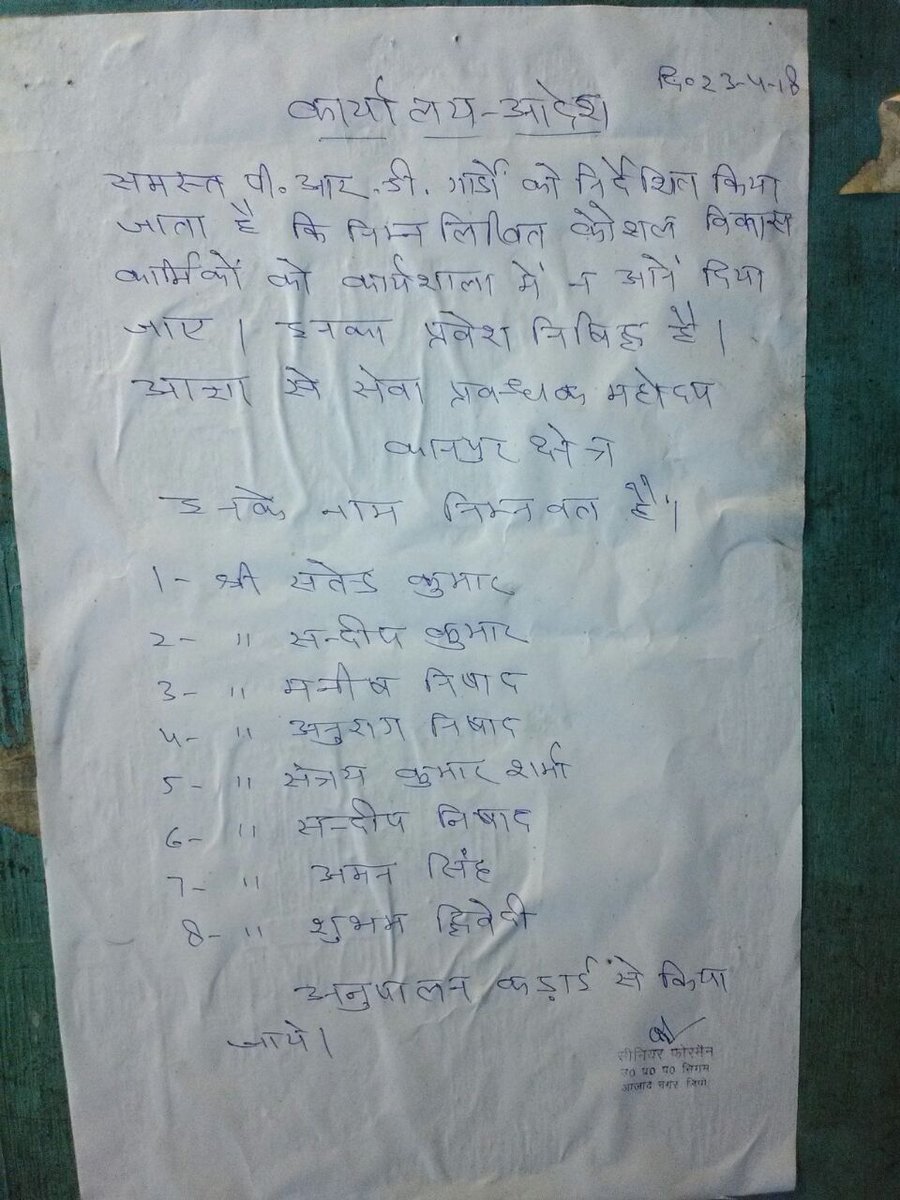 दि० 23-4-18
कार्यालय-आदेश
समस्त पी.आर.डी. गार्डों को निर्देशित किया
जाता है कि निम्न लिखित कौशल विकास
कार्मिकों को कार्यशाला में न आनें दिया
जाए। इनका प्रवेश निषिद्ध है।
आज्ञा से सेवा प्रबन्धक महोदय
कानपुर क्षेत्र
इनके नाम निम्नवत है।
1- श्री सतेन्द्र कुमार
2- " सन्दीप कुमार
3- " मनीष निषाद
4- " अनुराग निषाद
5- " संजय कुमार शर्मा
6- " सन्दीप निषाद
7- " अमन सिंह
8- " शुभम द्विवेदी
अनुपालन कड़ाई से किया
जाये।
सीनियर फोरमैन
उ० प्र० प० निगम
आजाद नगर डिपो